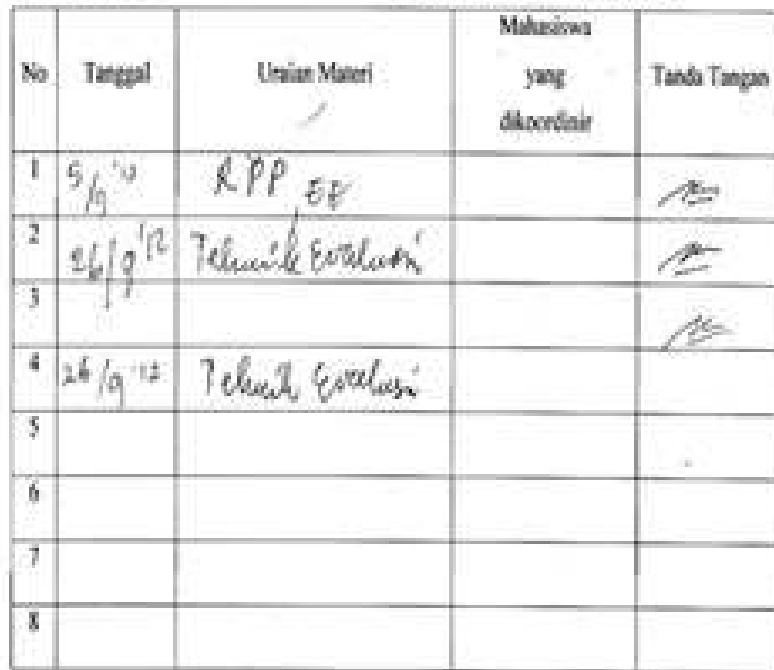 No Tanggal Uraian Materi Mahasiswa yang dikoordinir Tanda Tangan
1 5/9 '12 RPP,
2 26/9 '12 Teknik Evaluasi
3
4 26/9 '12 Teknik Evaluasi
5
6
7
8